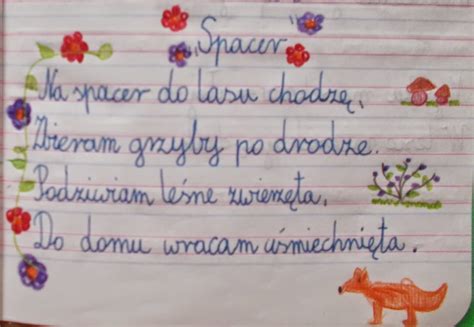 Spacer
Na spacer do lasu chodzę,
Zbieram grzyby po drodze.
Podziwiam leśne zwierzęta,
Do domu wracam uśmiechnięta.